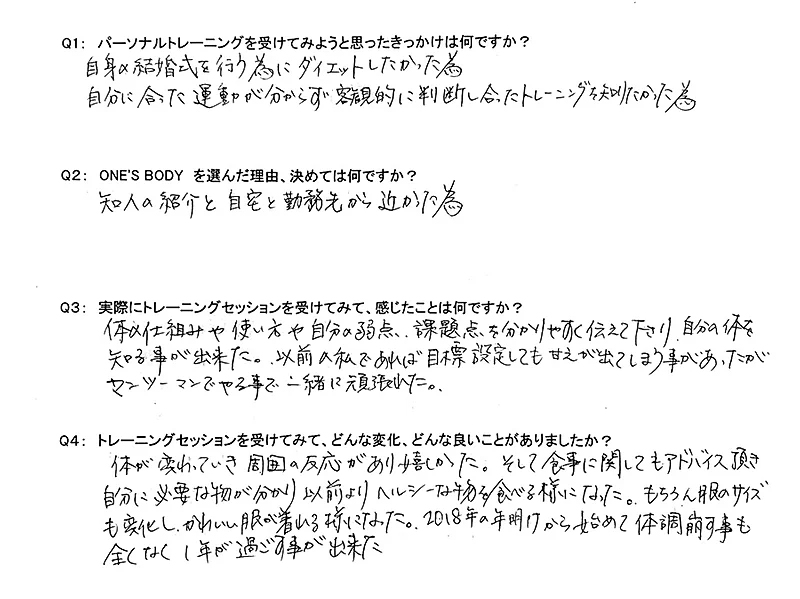 Q1: パーソナルトレーニングを受けてみようと思ったきっかけは何ですか？
自身の結婚式を行う為にダイエットしたかった為
自分に合った運動が分からず客観的に判断し合ったトレーニングを知りたかった為
Q2: ONE'S BODY を選んだ理由、決めては何ですか？
知人の紹介と自宅と勤務先から近かった為
Q3: 実際にトレーニングセッションを受けてみて、感じたことは何ですか？
体の仕組みや使い方や自分の弱点、課題点を分かりやすく伝えて下さり、自分の体を
知る事が出来た。以前の私であれば目標設定しても甘えが出てしまう事があったが
マンツーマンでやる事で一緒に頑張れた。
Q4: トレーニングセッションを受けてみて、どんな変化、どんな良いことがありましたか？
体が変わっていき周囲の反応があり嬉しかった。そして食事に関してもアドバイス頂き
自分に必要な物が分かり以前よりヘルシーな物を食べる様になった。もちろん服のサイズ
も変化し、かわいい服が着れる様になった。2018年の年明けから始めて体調崩す事も
全くなく1年が過ごす事が出来た